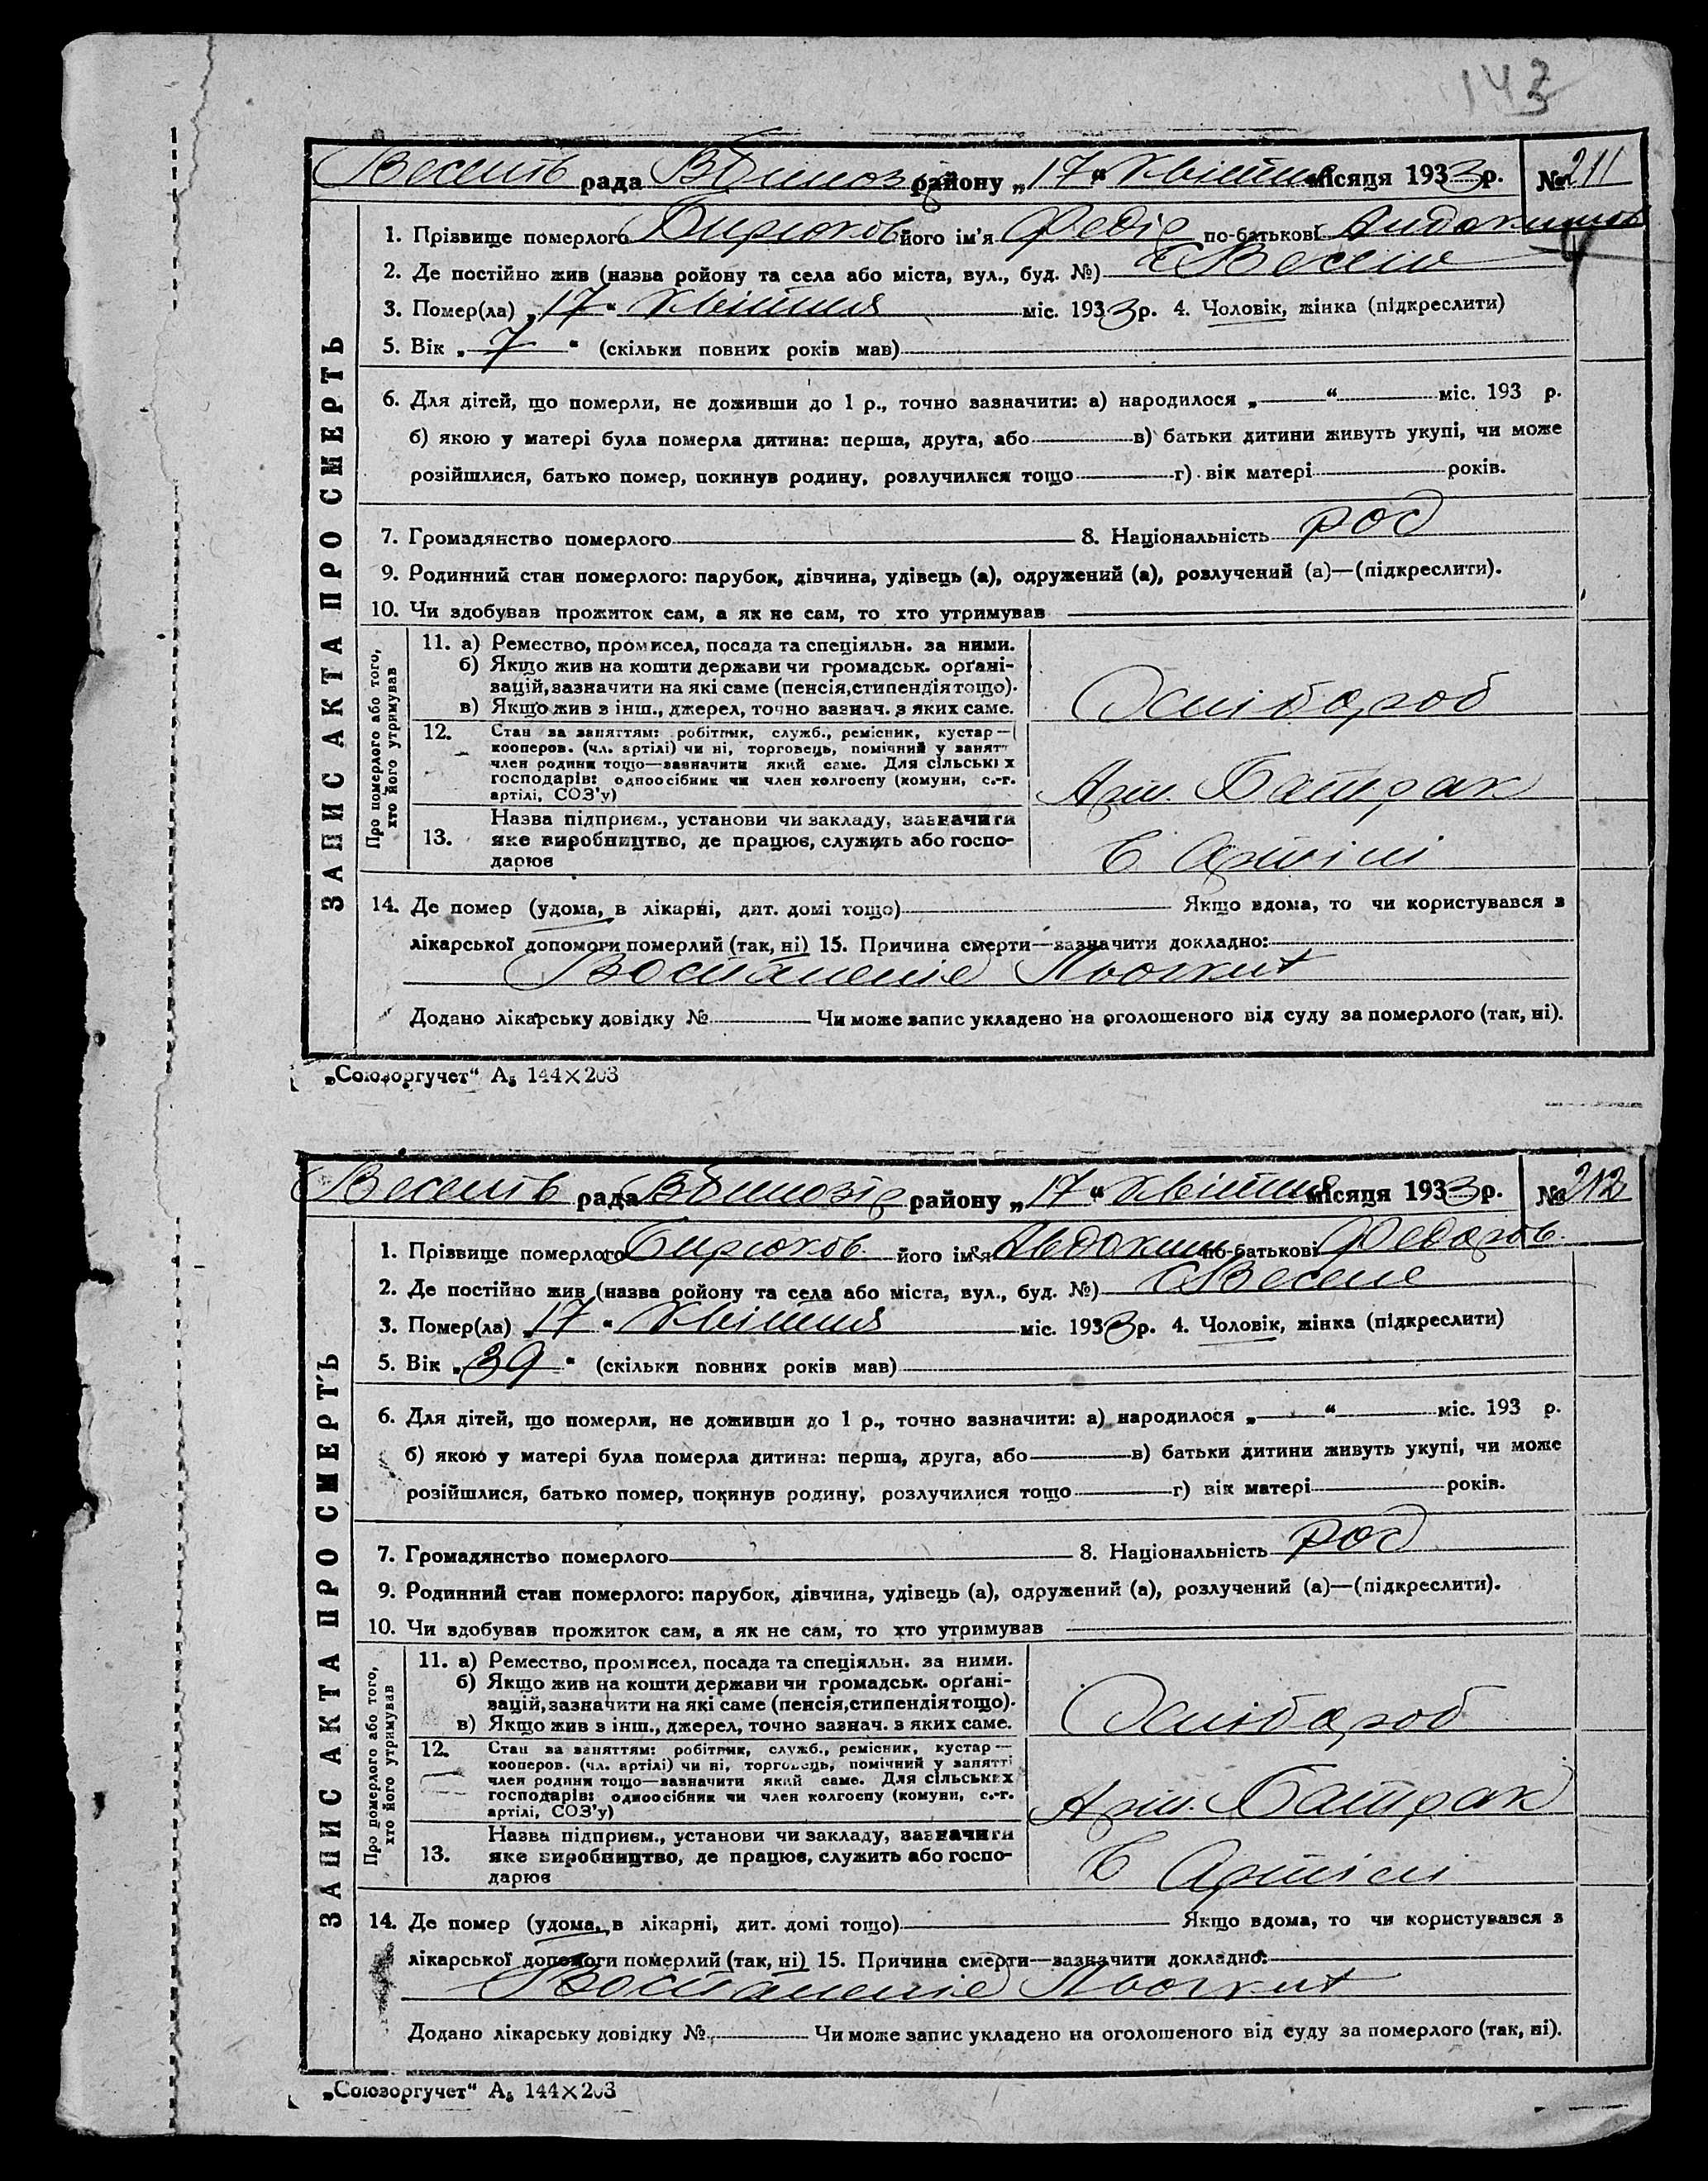 143
Веселів рада В Білоз району „17“ Квітня місяця 1933 р. № 211
ЗАПИС АКТА ПРО СМЕРТЬ
1. Прізвище померлого Бирюков його ім'я Федір по-батькові Авдокимов
2. Де постійно жив (назва ройону та села або міста, вул., буд. №) с Веселе
3. Помер(ла) „17“ Квітня міс. 1933 р. 4. Чоловік, жінка (підкреслити)
5. Вік „7“ (скільки повних років мав)
6. Для дітей, що померли, не доживши до 1 р., точно зазначити: а) народилося „ “ міс. 193 р.
б) якою у матері була померла дитина: перша, друга, або в) батьки дитини живуть укупі, чи може
розійшлися, батько помер, покинув родину, розлучилися тощо г) вік матері років.
7. Громадянство померлого 8. Національність рос
9. Родинний стан померлого: парубок, дівчина, удівець (а), одружений (а), розлучений (а)—(підкреслити).
10. Чи здобував прожиток сам, а як не сам, то хто утримував
Про померлого або того, хто його утримував
11. а) Ремество, промисел, посада та спеціяльн. за ними.
б) Якщо жив на кошти держави чи громадськ. орґані-
зацій, зазначити на які саме (пенсія, стипендія тощо).
в) Якщо жив з інш., джерел, точно зазнач. з яких саме.
Хлібороб
12. Стан за заняттям: робітник, служб., ремісник, кустар—
кооперов. (чл. артілі) чи ні, торговець, помічний у занятт
член родини тощо—зазначити який саме. Для сільських
господарів: одноосібник чи член колгоспу (комуни, с.-г.
артілі, СОЗ'у)
Арт. Батрак
Назва підприєм., установи чи закладу, зазначити
13. яке виробництво, де працює, служить або госпо-
дарює
В Артілі
14. Де помер (удома, в лікарні, дит. домі тощо) Якщо вдома, то чи користувався з
лікарської допомоги померлий (так, ні) 15. Причина смерти—зазначити докладно:
Воспаленіє Льогких
Додано лікарську довідку № Чи може запис укладено на оголошеного від суду за померлого (так, ні).
„Союзоргучет“ А₅ 144×203
Веселів рада В Білозір району „17“ Квітня місяця 1933 р. № 212
ЗАПИС АКТА ПРО СМЕРТЬ
1. Прізвище померлого Бирюков його ім'я Авдоким по-батькові Федоров
2. Де постійно жив (назва ройону та села або міста, вул., буд. №) с Веселе
3. Помер(ла) „17“ Квітня міс. 1933 р. 4. Чоловік, жінка (підкреслити)
5. Вік „39“ (скільки повних років мав)
6. Для дітей, що померли, не доживши до 1 р., точно зазначити: а) народилося „ “ міс. 193 р.
б) якою у матері була померла дитина: перша, друга, або в) батьки дитини живуть укупі, чи може
розійшлися, батько помер, покинув родину, розлучилися тощо г) вік матері років.
7. Громадянство померлого 8. Національність рос
9. Родинний стан померлого: парубок, дівчина, удівець (а), одружений (а), розлучений (а)—(підкреслити).
10. Чи здобував прожиток сам, а як не сам, то хто утримував
Про померлого або того, хто його утримував
11. а) Ремество, промисел, посада та спеціяльн. за ними.
б) Якщо жив на кошти держави чи громадськ. орґані-
зацій, зазначити на які саме (пенсія, стипендія тощо).
в) Якщо жив з інш., джерел, точно зазнач. з яких саме.
Хлібороб
12. Стан за заняттям: робітник, служб., ремісник, кустар—
кооперов. (чл. артілі) чи ні, торговець, помічний у занятті
член родини тощо—зазначити який саме. Для сільських
господарів: одноосібник чи член колгоспу (комуни, с.-г.
артілі, СОЗ'у)
Арт. Батрак
Назва підприєм., установи чи закладу, зазначити
13. яке виробництво, де працює, служить або госпо-
дарює
В Артілі
14. Де помер (удома, в лікарні, дит. домі тощо) Якщо вдома, то чи користувався з
лікарської допомоги померлий (так, ні) 15. Причина смерти—зазначити докладно:
Воспаленіє Льогких
Додано лікарську довідку № Чи може запис укладено на оголошеного від суду за померлого (так, ні).
„Союзоргучет“ А₅ 144×203